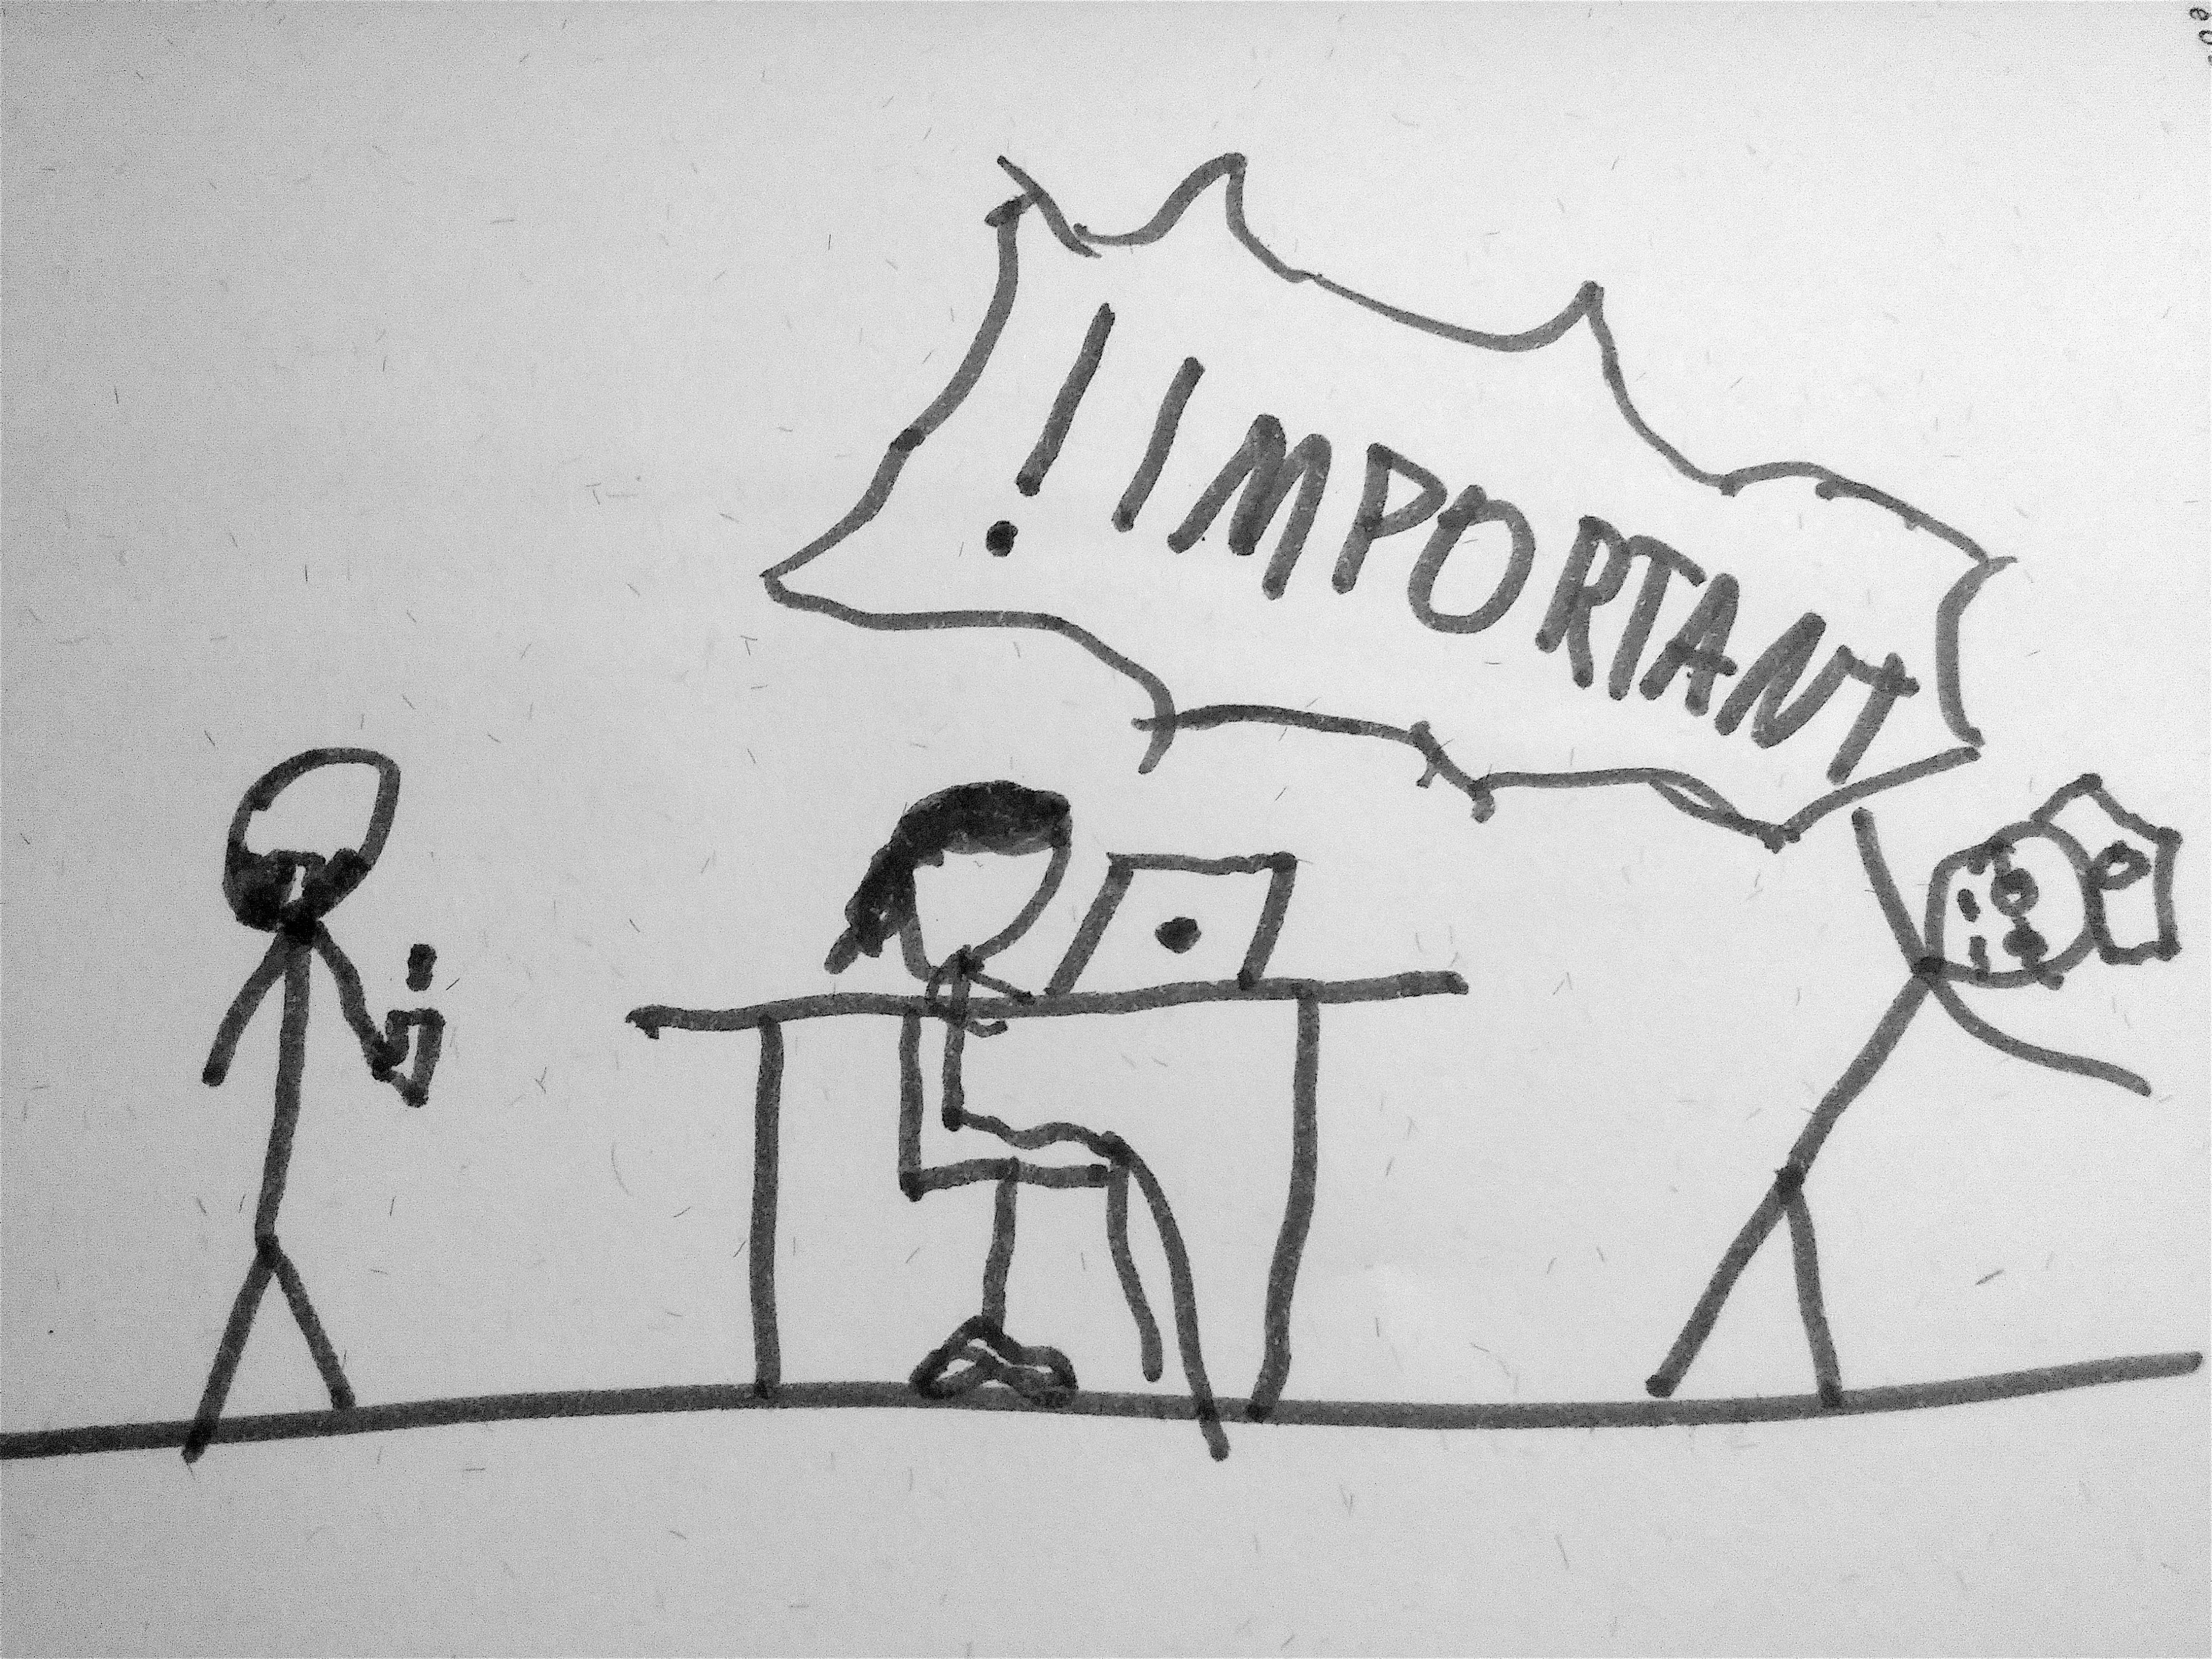 ! IMPORTANT